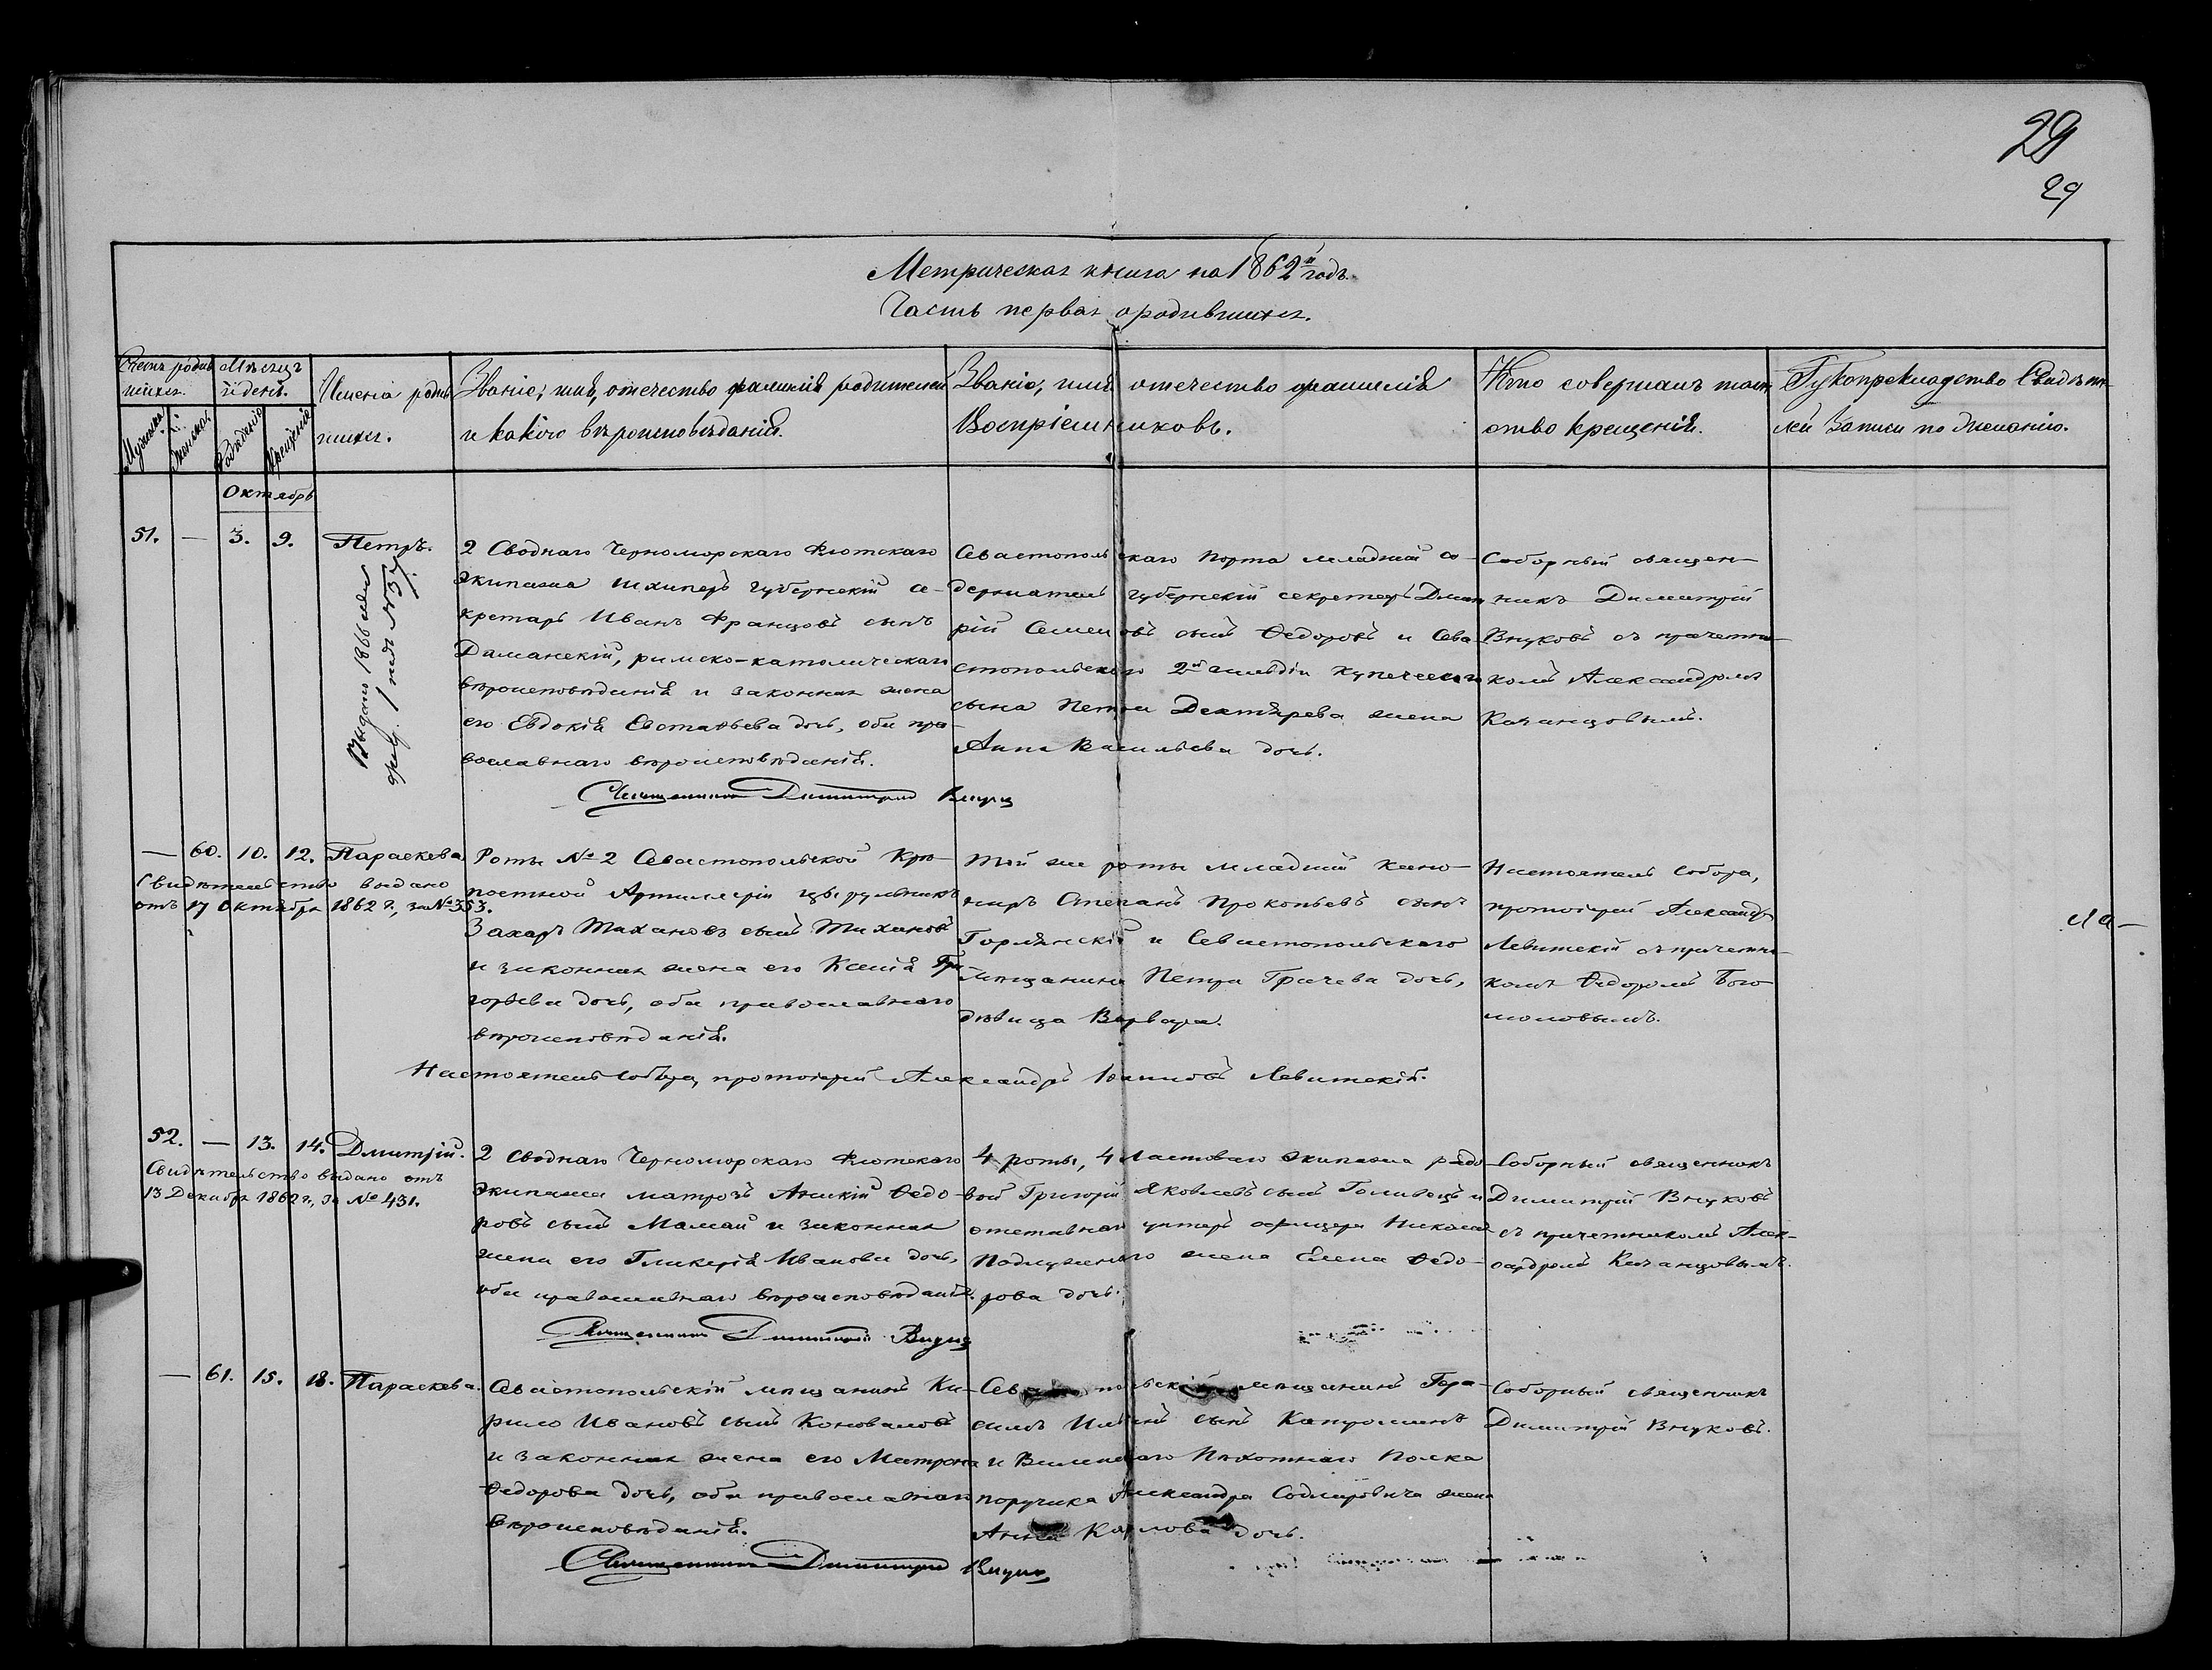 29
29
Метрическая книга на 1862й годъ.
Часть первая о родившихся.
Счетъ родив
шихся.
Мѣсяцъ
и день.
Мужеска
Женска
Рожденія
Крещенія
Имена родив
шихся.
Званіе, имя, отечество фамилія родителей
и какого вѣроисповѣданія.
Званіе, имя отечество фамилія
Воспріемниковъ.
Кто совершалъ таин
ство крещенія.
Рукоприкладство свидѣте
лей записи по желанію.
Октябрь
51. — 3. 9. Петръ.
Выдано 1866 года
№ 37
2 Своднаго Черноморскаго Флотскаго
экипажа шкиперъ губернскій се-
кретарь Иванъ Францовъ сынъ
Даманскій, римско-католическаго
вѣроисповѣданія и законная жена
его Евдокія Евстафьева дочь, оба пра
вославнаго вѣроисповѣданія.
Севастопольскаго порта младшій со-
держатель губернскій секретарь Дмит
рій Семеновъ сынъ Федоровъ и Сева
стопольскаго 2й гильдіи купеческаго
сына Петра Дехтярева жена
Анна Васильева дочь.
Соборный священ-
никъ Димитрій
Внуковъ съ причетни-
комъ Александромъ
Казанцовымъ.
Священникъ Димитрій Внуковъ
— 60. 10. 12. Параскева
Свидѣтельство выдано
отъ 17 Октября 1862 г., за № 353.
Роты № 2 Севастопольской Крѣ-
постной Артиллеріи цырульникъ
Захаръ Тихановъ сынъ Тихановъ
и законная жена его Ксенія Гри
горьева дочь, оба православнаго
вѣроисповѣданія.
Той же роты младшій кано-
ниръ Степанъ Прокопьевъ сынъ
Горлянскій и Севастопольскаго
мѣщанина Петра Грачева дочь,
дѣвица Варвара.
Настоятель собора,
протоіерей Александръ
Левитскій съ причетни-
комъ Федоромъ Бого
моловымъ.
Настоятель собора, протоіерей Александръ Іоанновъ Левитскій.
52. — 13. 14. Дмитрій.
Свидѣтельство выдано отъ
13 Декабря 1862 г., за № 431.
2 Своднаго Черноморскаго Флотскаго
экипажа матрозъ Аникій Федо-
ровъ сынъ Мамай и законная
жена его Гликерія Иванова дочь,
оба православнаго вѣроисповѣданія.
4 роты, 4 Ластоваго экипажа рядо
вой Григорій Яковлевъ сынъ Голивецъ и
отставнаго унтеръ офицера Николая
Подлужнаго жена Елена Федо-
рова дочь.
Соборный священникъ
Димитрій Внуковъ
съ причетникомъ Алек-
сандромъ Казанцовымъ.
Священникъ Димитрій Внуковъ
— 61. 15. 18. Параскева.
Севастопольскій мѣщанинъ Ки-
рило Ивановъ сынъ Коноваловъ
и законная жена его Матрона
Федорова дочь, оба православнаго
вѣроисповѣданія.
Севастопольскій мѣщанинъ Гера-
симъ Ильинъ сынъ
и Виленскаго Пѣхотнаго Полка
поручика Александра жена
Анна Карлова дочь.
Соборный священникъ
Димитрій Внуковъ.
Священникъ Димитрій Внуковъ